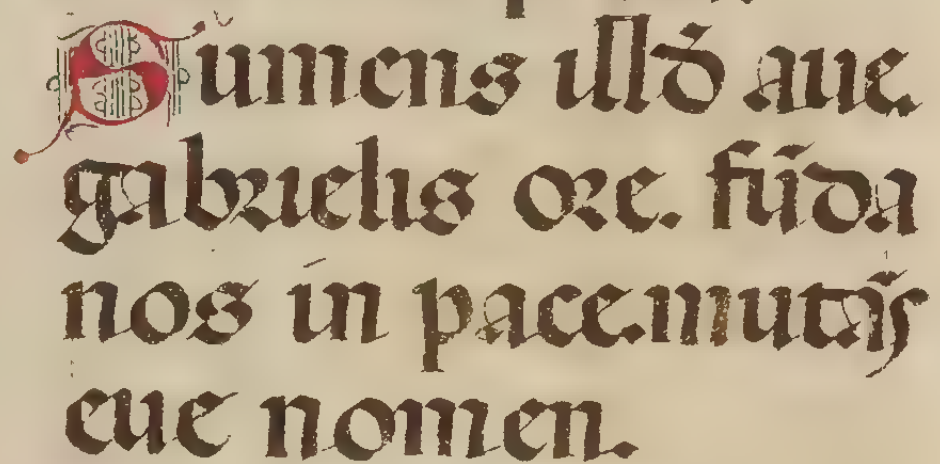 Sumens illđ aue
gabrielis ore. fūda
nos in pace. mutās
eue nomen.